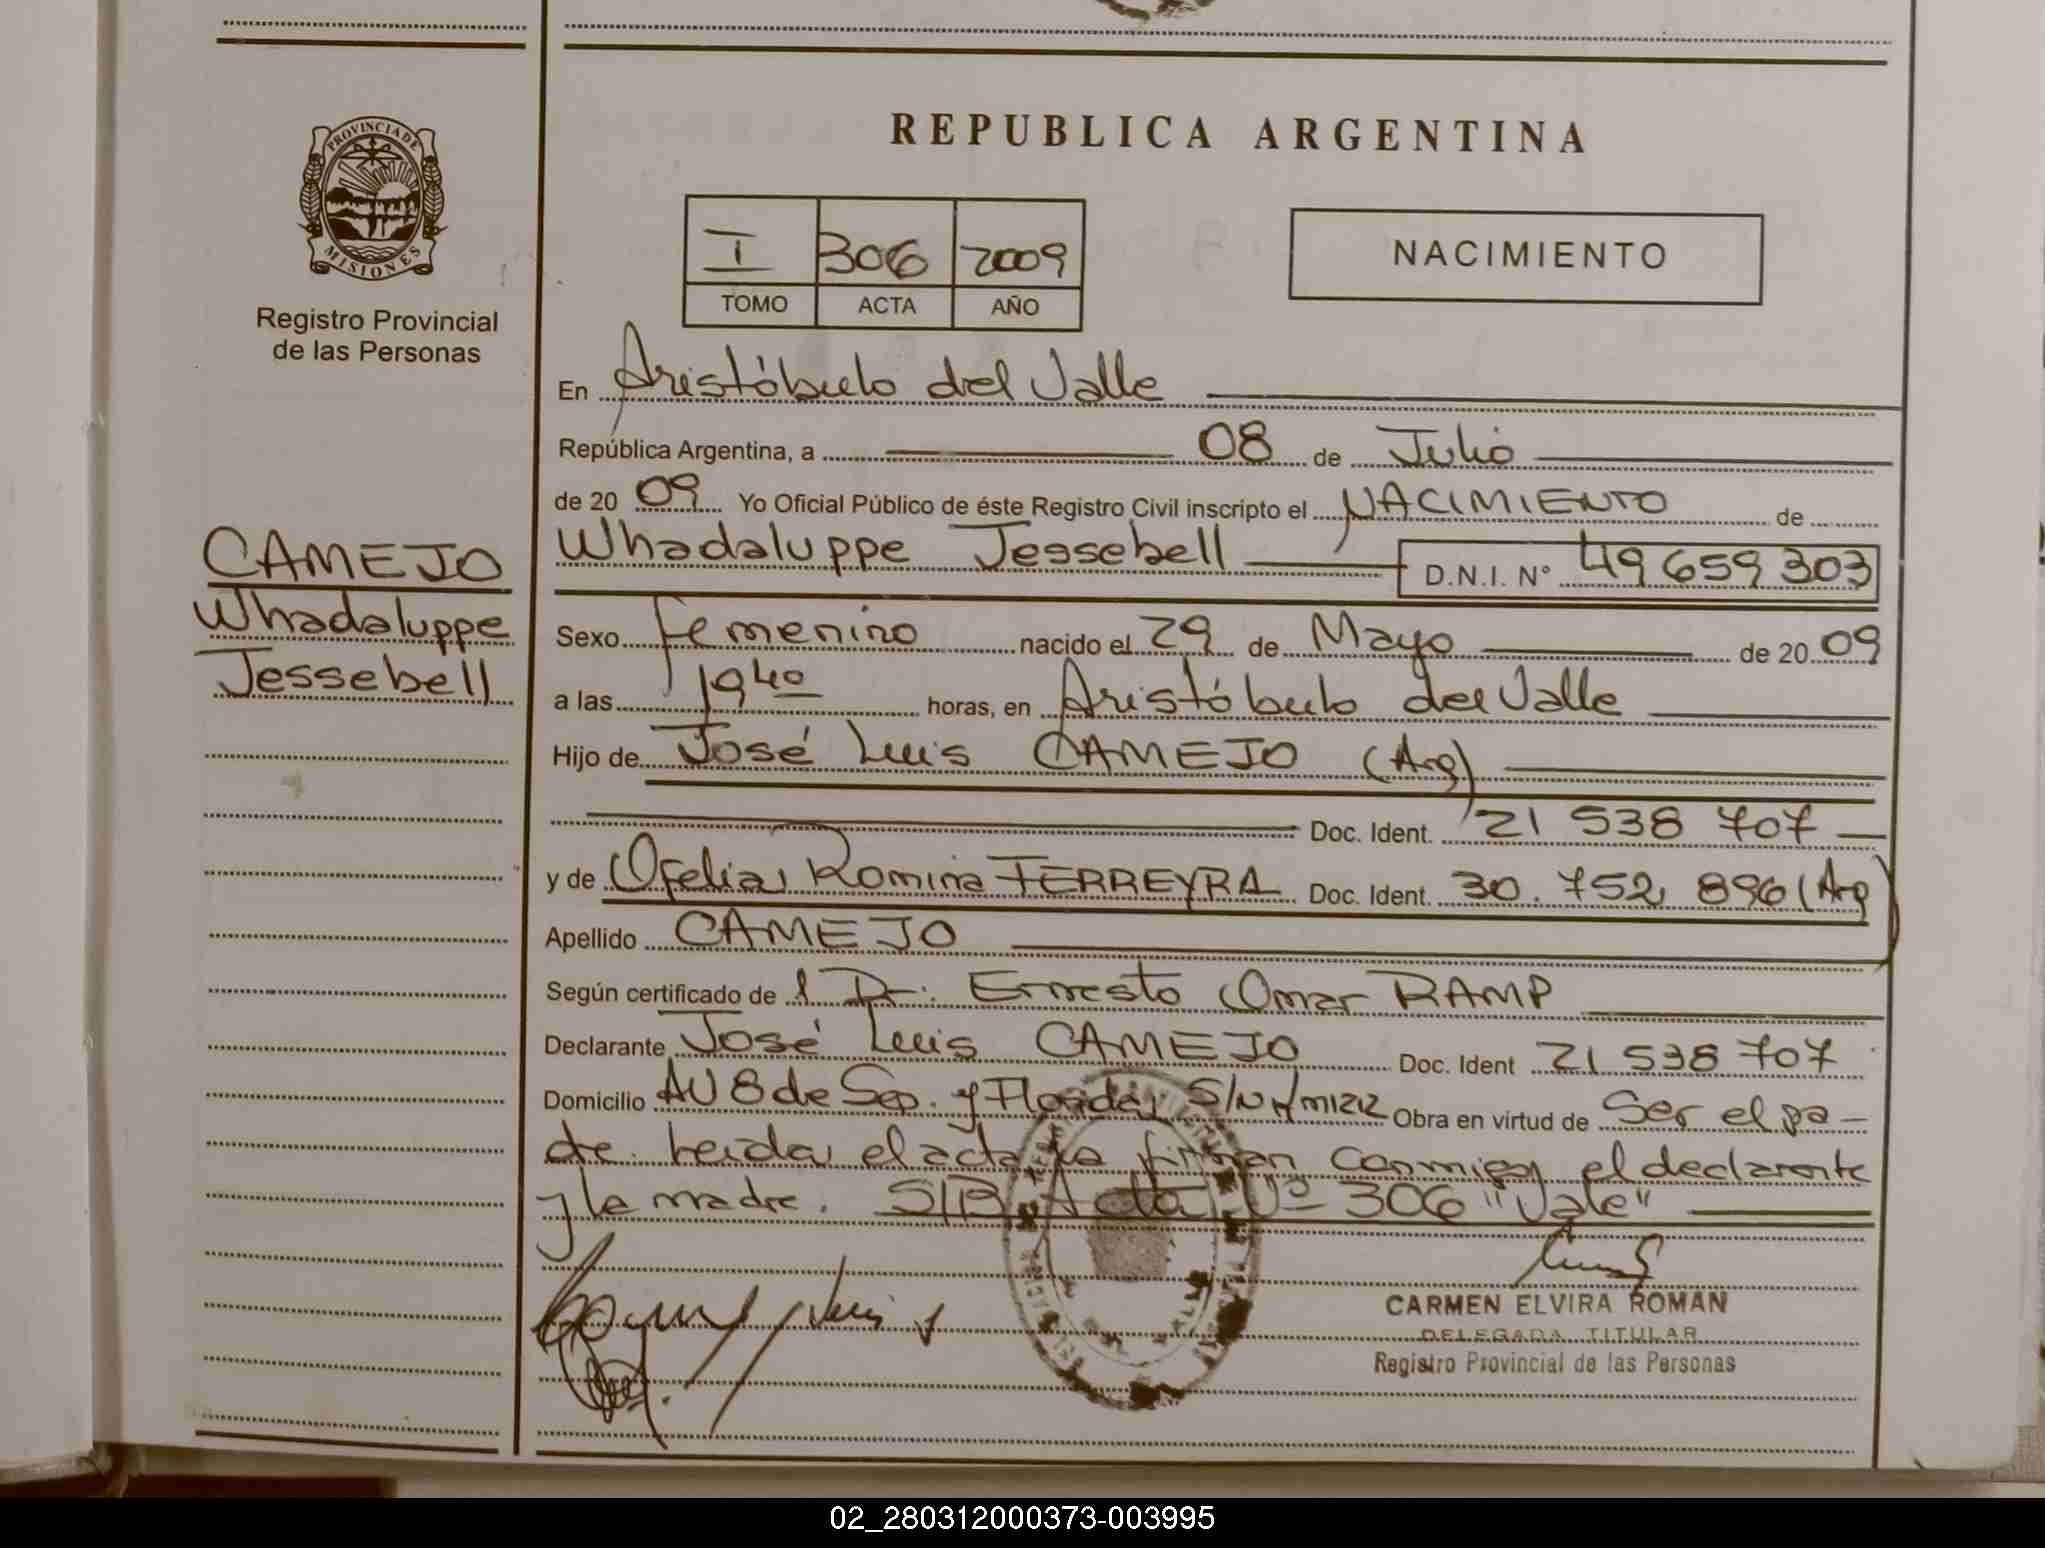 REPUBLICA ARGENTINA
PROVINCIA DE
MISIONES
Registro Provincial
de las Personas
I 306 2009
TOMO ACTA AÑO
NACIMIENTO
CAMEJO
Whadaluppe
Jessebell
En Aristóbulo del Valle
República Argentina, a 08 de Julio
de 20 09 Yo Oficial Público de éste Registro Civil inscripto el NACIMIENTO de
Whadaluppe Jessebell D.N.I. Nº 49 659 303
Sexo femenino nacido el 29 de Mayo de 20 09
a las 19 40 horas, en Aristóbulo del Valle
Hijo de José Luis CAMEJO (Arg)
Doc. Ident. 21 538 707
y de Ofelia Romina FERREYRA Doc. Ident. 30.752 896 (Arg)
Apellido CAMEJO
Según certificado de l Dr: Ernesto Omar RAMP
Declarante José Luis CAMEJO Doc. Ident 21 538 707
Domicilio AV 8 de Sep. y Florida S/N Km 1212 Obra en virtud de Ser el pa-
dre. Leida el acta la firman conmigo el declarante
y la madre. S/B Acta Nº 306 "Vale"
CARMEN ELVIRA ROMAN
DELEGADA TITULAR
Registro Provincial de las Personas
02_280312000373-003995